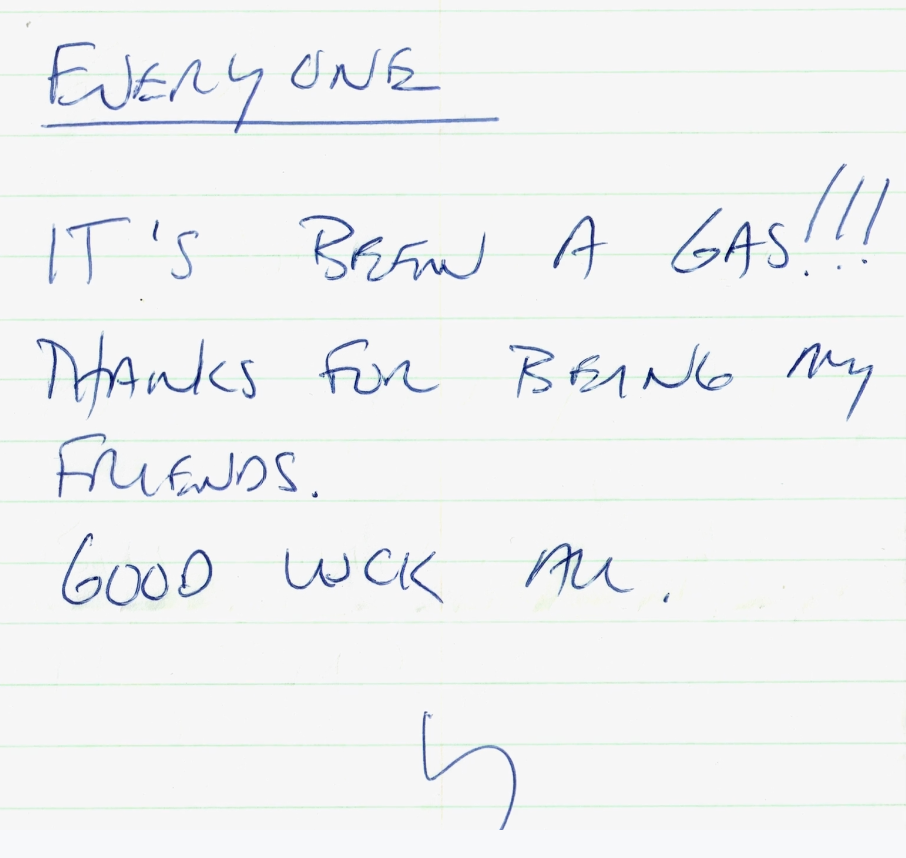 EVERYONE
IT'S BEEN A GAS!!!
THANKS FOR BEING MY
FRIENDS.
GOOD LUCK ALL.